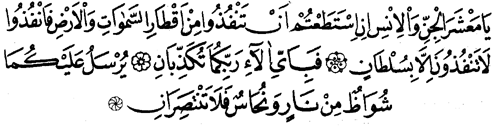 يَا مَعْشَرَ الْجِنِّ وَالْاِنْسِ اِنِ اسْتَطَعْتُمْ اَنْ تَنْفُذُوا مِنْ اَقْطَارِ السَّمٰوَاتِ وَالْاَرْضِ فَانْفُذُوا
لَا تَنْفُذُونَ اِلَّا بِسُلْطَانٍ ۝ فَبِاَىِّ اٰلَٓاءِ رَبِّكُمَا تُكَذِّبَانِ ۝ يُرْسَلُ عَلَيْكُمَا
شُوَاظٌ مِنْ نَارٍ وَنُحَاسٌ فَلَا تَنْتَصِرَانِ ۝